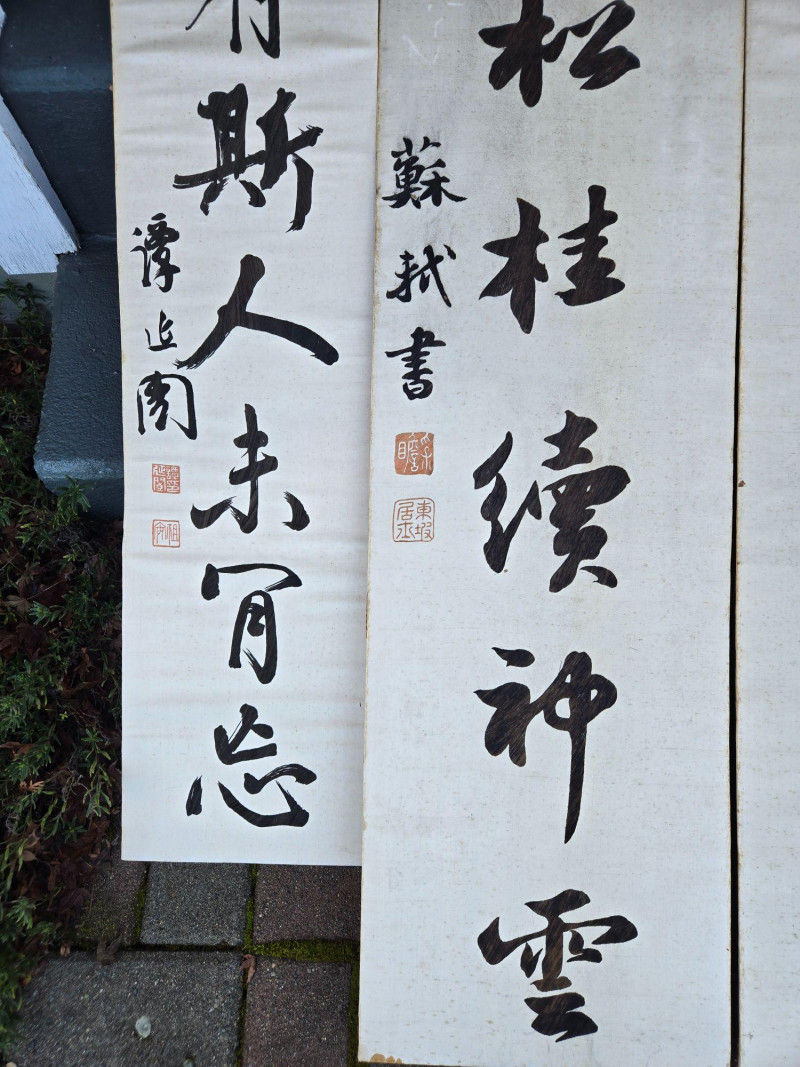 松桂續神雲
蘇軾書
東坡居士
有斯人未閒忘
譚延闓
祖安